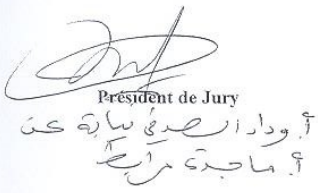 Président de Jury
أ. وداد الصدفي نيابة عن
أ. ماجدة مرابط